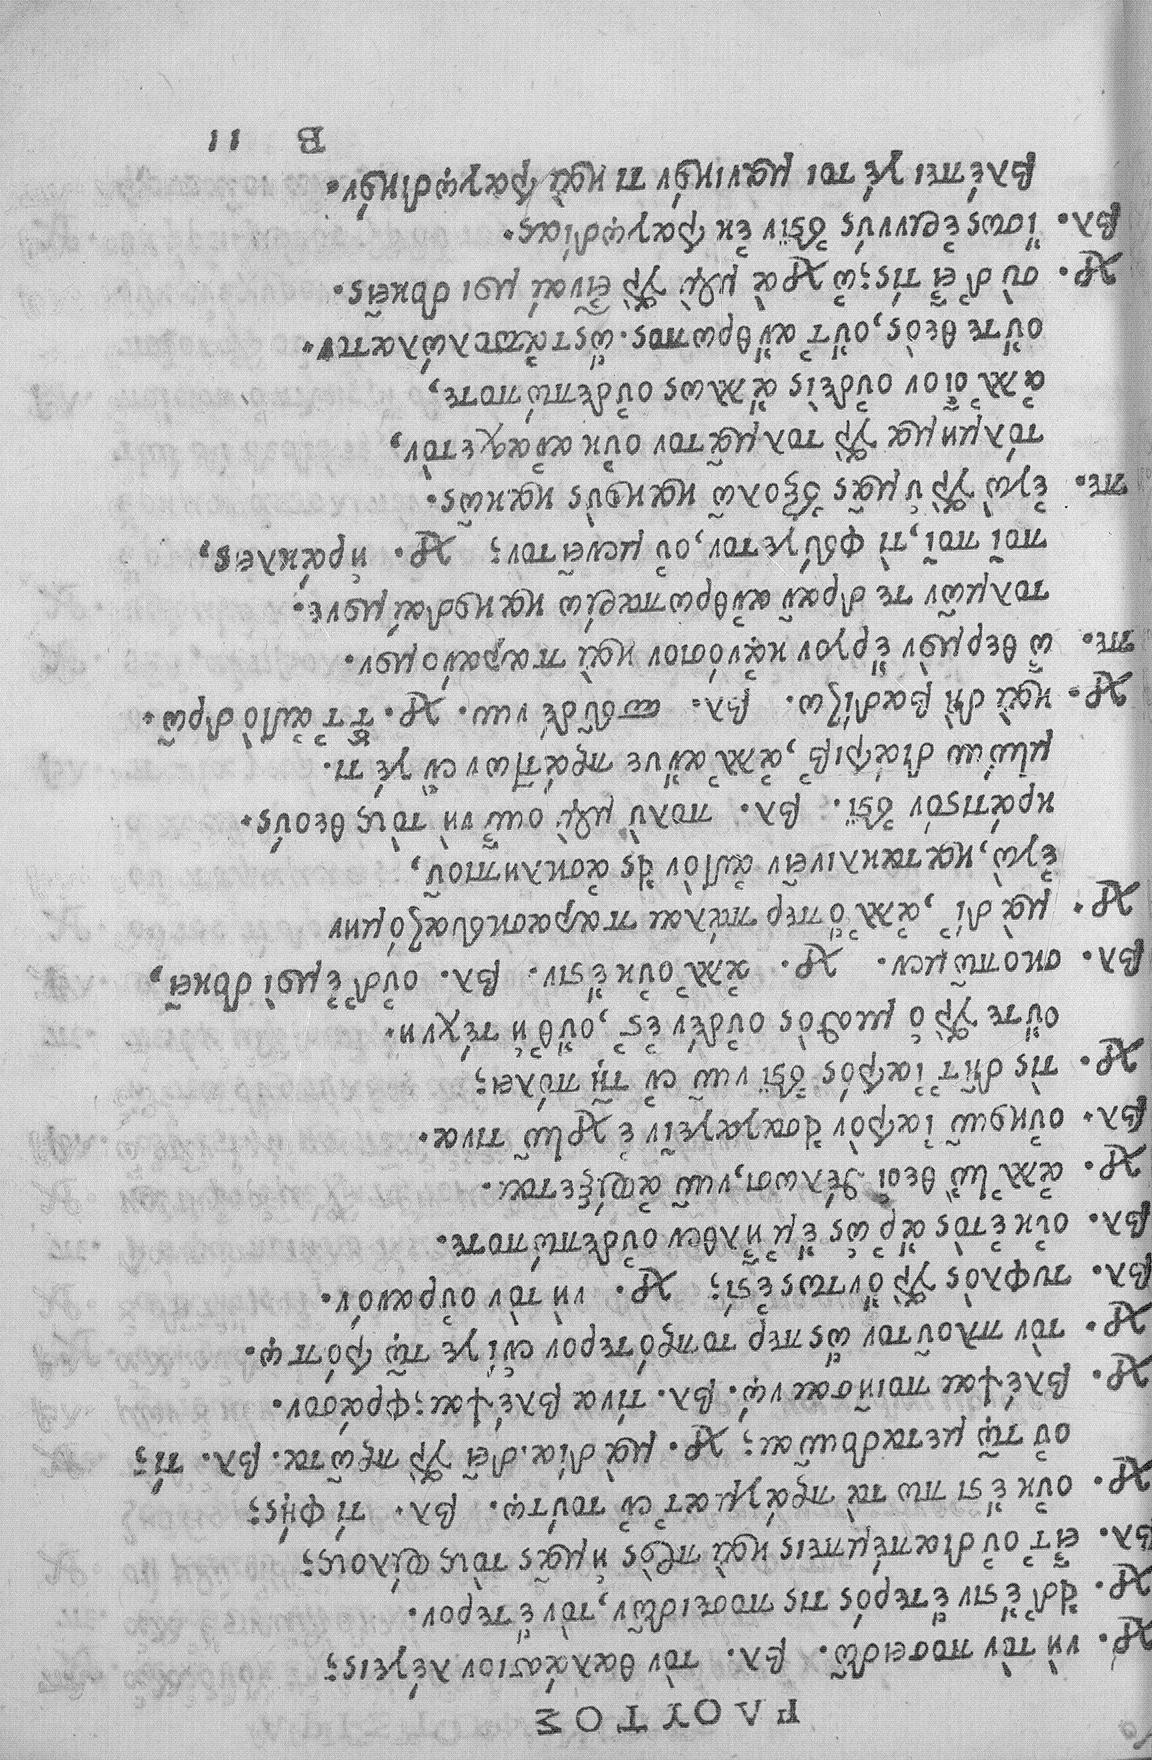 ΠΛΟΥΤΟΣ
Χρ. νὴ τὸν ποσειδῶ. Βλ. τὸν θαλάσσιον λέγεις;
Χρ. εἰ δ' ἔστιν ἕτερός τις ποσειδῶν, τὸν ἕτερον.
Βλ. εἶτ' οὐ διαπέμπεις καὶ πρὸς ἡμᾶς τοὺς φίλους;
Χρ. οὐκ ἔστι πω τὰ πράγματ' ἐν τούτῳ. Βλ. τί φῄς;
οὐ τῷ μεταδοῦναι; Χρ. μὰ δία. δεῖ γὰρ πρῶτα. Βλ. τί;
Χρ. βλέψαι ποιῆσαι νῴ. Βλ. τίνα βλέψαι; φράσον.
Χρ. τὸν πλοῦτον ὥσπερ τοπρότερον ἑνί γε τῳ τρόπῳ.
Βλ. τυφλὸς γὰρ ὄντως ἐστί; Χρ. νὴ τὸν οὐρανόν.
Βλ. οὐκ ἐτὸς ἄρ' ὡς ἔμ' ἦλθεν οὐδεπώποτε.
Χρ. ἀλλ' ἢν θεοὶ θέλωσι, νῦν ἀφίξεται.
Βλ. οὔκουν ἰατρὸν εἰσαγαγεῖν ἐχρῆν τινα.
Χρ. τίς δῆτ' ἰατρός ἐστι νῦν ἐν τῇ πόλει;
οὔτε γὰρ ὁ μισθὸς οὐδέν ἐστ', οὔθ' ἡ τέχνη.
Βλ. σκοπῶμεν. Χρ. ἀλλ' οὐκ ἔστιν. Βλ. οὐδ' ἐμοὶ δοκεῖ,
Χρ. μὰ δί', ἀλλ' ὅπερ πάλαι παρεσκευαζόμην
ἐγώ, κατακλινεῖν αὐτὸν εἰς ἀσκληπιοῦ,
κράτιστόν ἐστι. Βλ. πολὺ μὲν οὖν νὴ τοὺς θεούς.
μή νυν διάτριβ', ἀλλ' ἄνυε πράττων ἕν γέ τι.
Χρ. καὶ δὴ βαδίζω. Βλ. σπεῦδέ νυν. Χρ. τοῦτ' αὐτὸ δρῶ.
πε. ὦ θερμὸν ἔργον κἀνόσιον καὶ παράνομον.
τολμῶν τε δρᾶν ἀνθρωπαρίω κακοδαίμονε.
ποῖ ποῖ, τί φεύγετον, οὐ μενεῖτον; Χρ. ἡράκλεις,
πε. ἐγὼ γὰρ ὑμᾶς ἐξολῶ κακοὺς κακῶς.
τόλμημα γὰρ τολμᾶτον οὐκ ἀνασχετὸν,
ἀλλ' οἷον οὐδεὶς ἄλλος οὐδεπώποτε,
οὔτε θεός, οὔτ' ἄνθρωπος. ὥστ' ἀπολώλατον.
Χρ. σὺ δ' εἶ τίς; ὠχρὰ μὲν γὰρ εἶναί μοι δοκεῖς.
Βλ. ἴσως ἐριννύς ἐστιν ἐκ τραγῳδίας.
βλέπει γέ τοι μανικόν τι καὶ τραγῳδικόν.
B ii